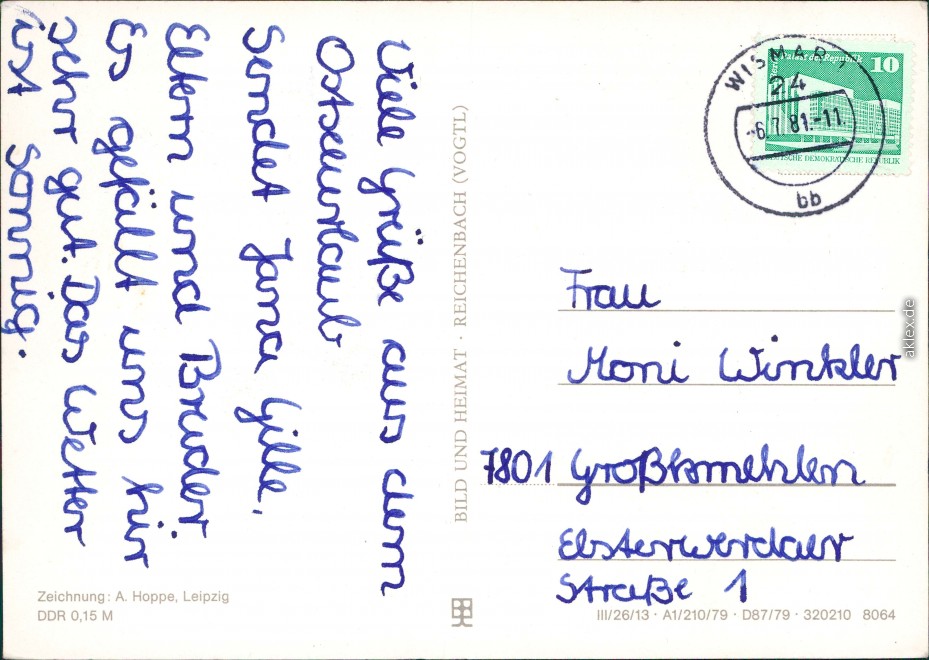 Viele Grüße aus dem
Ostseeurlaub
Sendet Jana Gille.
Eltern und Bruder.
Es gefällt uns hir
sehr gut. Das Wetter
ist Sonnig.
BILD UND HEIMAT · REICHENBACH (VOGTL)
WISMAR 1
24
-6.7.81.-11
bb
Palast der Republik
10
DEUTSCHE DEMOKRATISCHE REPUBLIK
Frau
Moni Winkler
7801 Großkmehlen
Elsterwerdaer
Straße 1
Zeichnung: A. Hoppe, Leipzig
DDR 0,15 M
III/26/13 · A1/210/79 · D87/79 · 320210 8064
aklex.de